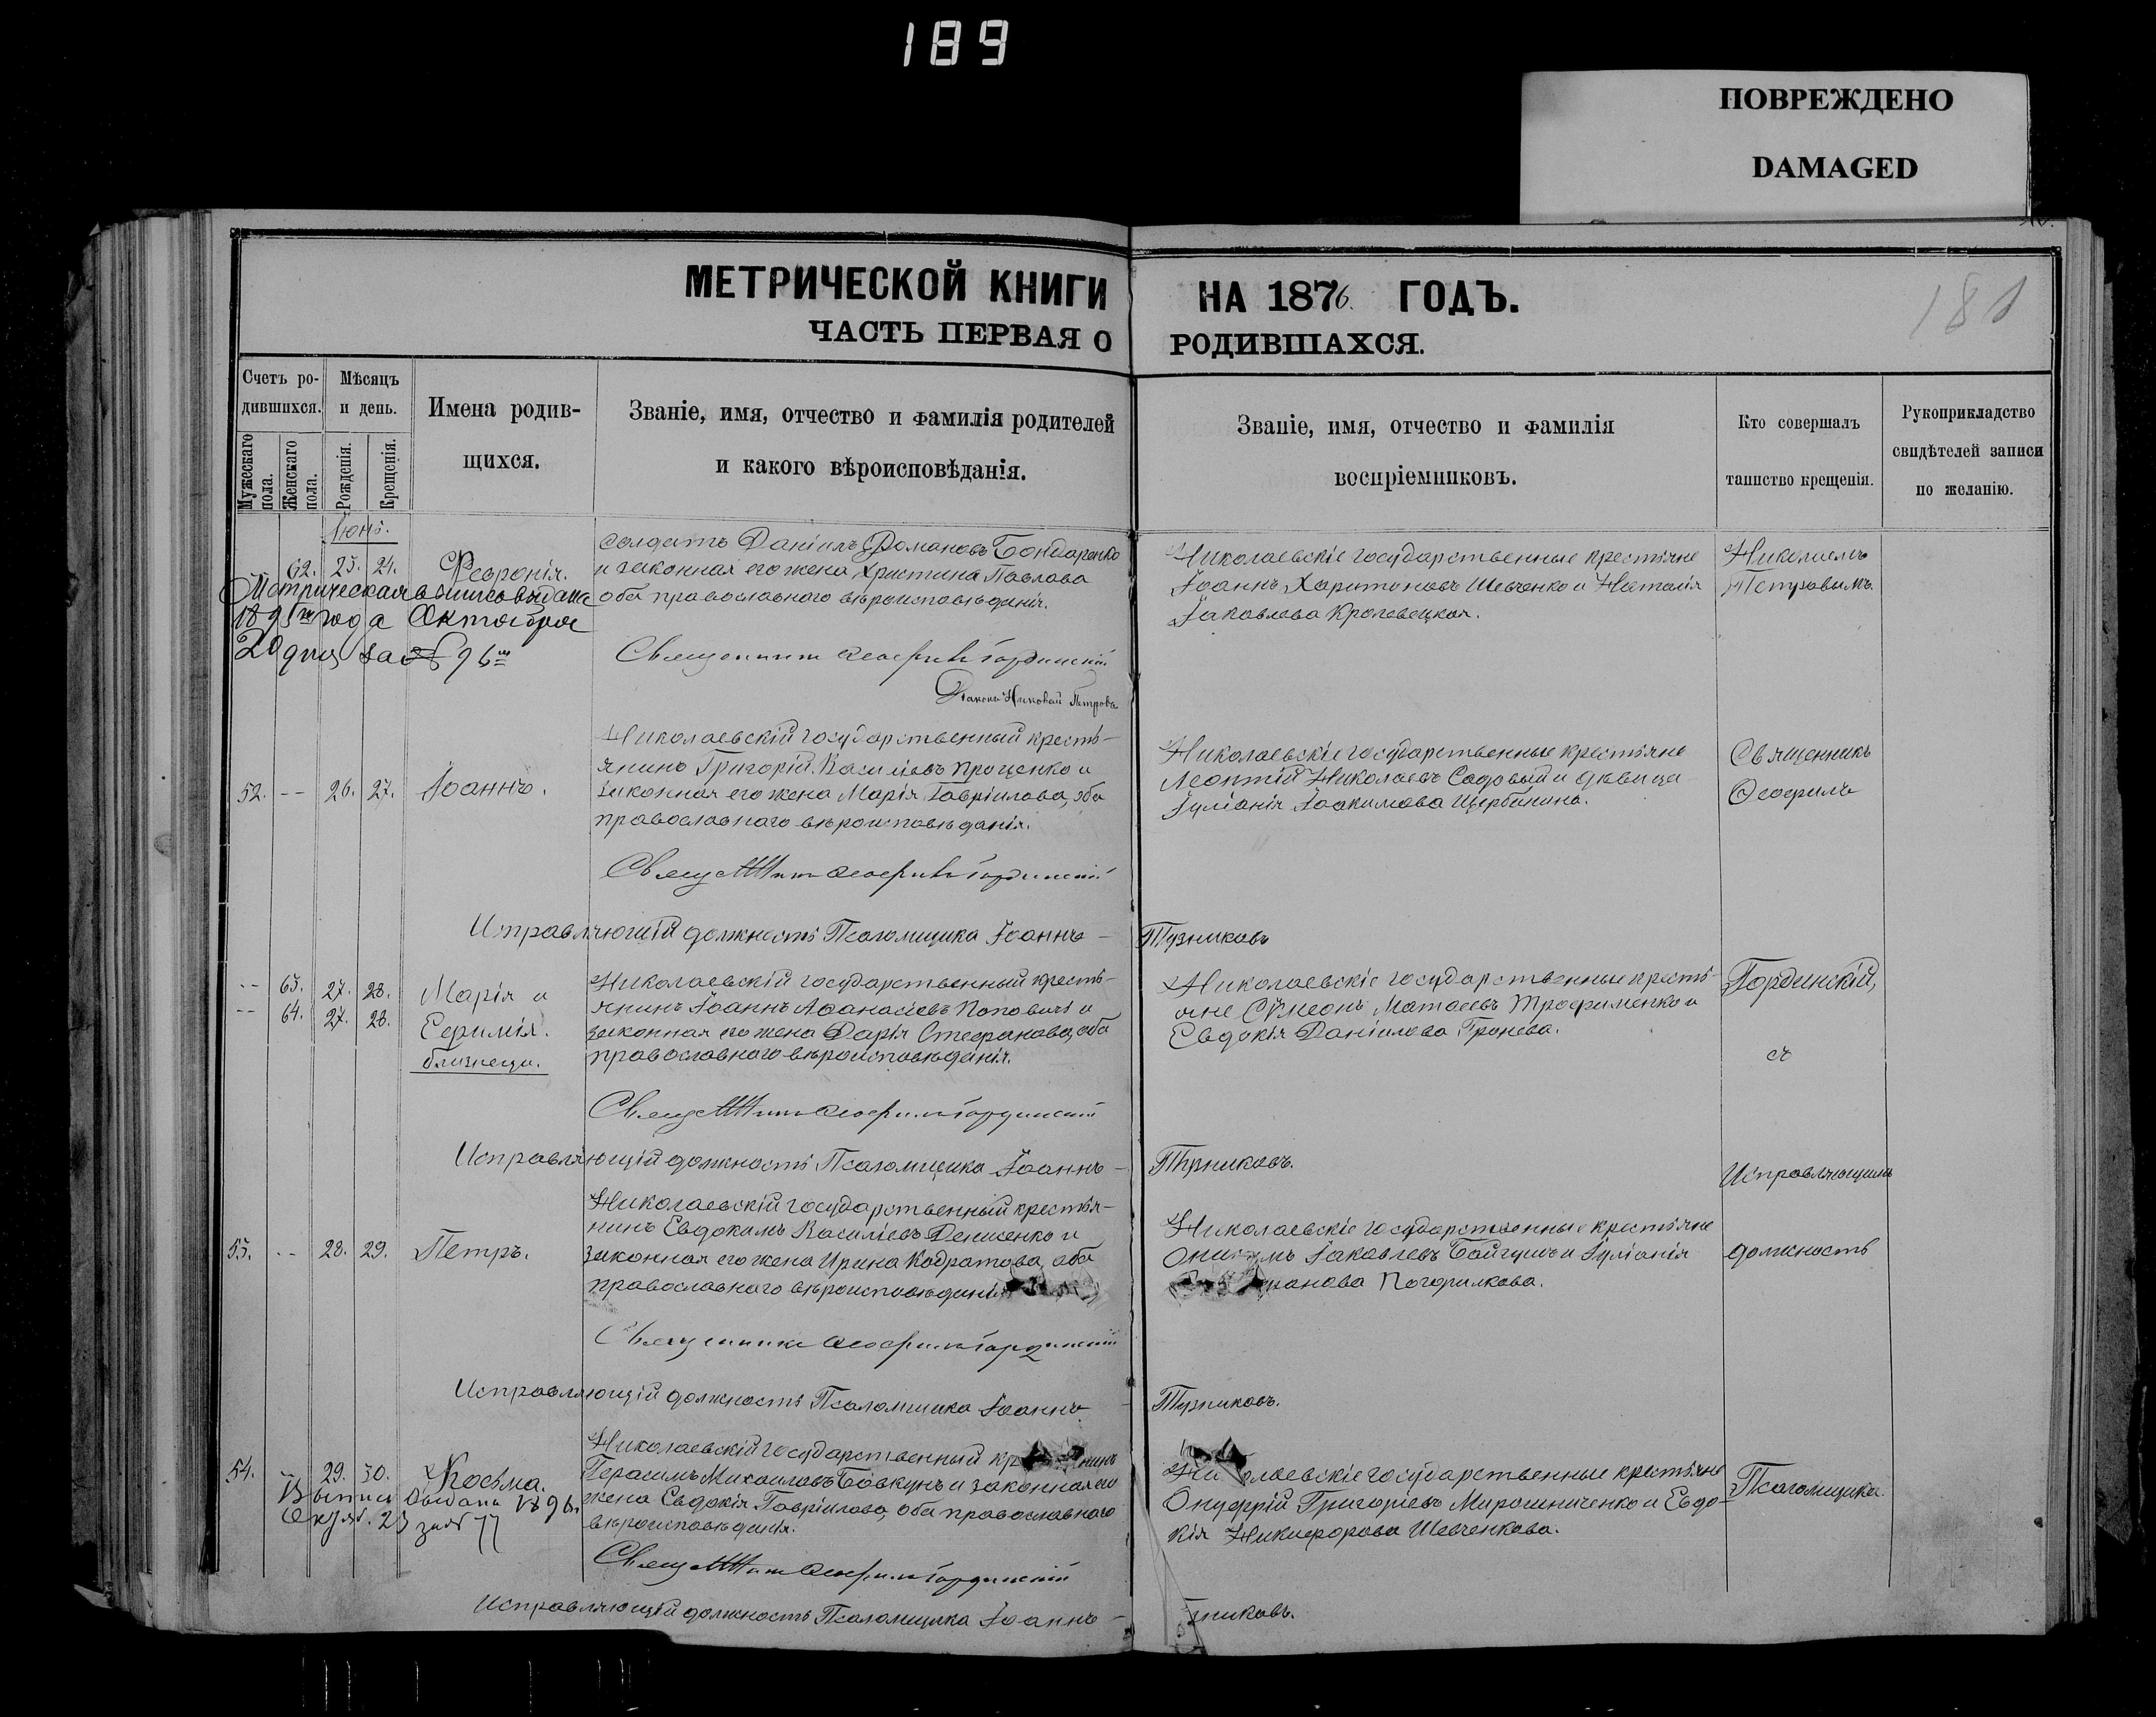 189
ПОВРЕЖДЕНО
DAMAGED
МЕТРИЧЕСКОЙ КНИГИ НА 1876. ГОДЪ.
ЧАСТЬ ПЕРВАЯ О РОДИВШАХСЯ.
Счетъ родившихся.
Мужескаго пола.
Женскаго пола.
Мѣсяцъ и день.
Рожденія.
Крещенія.
Имена родив-
щихся.
Званіе, имя, отчество и фамилія родителей
и какого вѣроисповѣданія.
Званіе, имя, отчество и фамилія
воспріемниковъ.
Кто совершалъ
таинство крещенія.
Рукоприкладство
свидѣтелей записи
по желанію.
Іюнь.
62. 23. 24. Февронія.
Метрическая выпись выдана
года Октября
20 дня за № 96
Солдатъ Даніилъ Романовъ Бондаренко
и законная его жена Христина Павлова
оба православнаго вѣроисповѣданія.
Николаевскіе государственные крестьяне
Іоаннъ Харитоновъ Шевченко и Наталія
Іаковлева Кролевецкая.
Николаемъ
Петровымъ.
Священникъ Ѳеофилъ Гординскій
Діаконъ Николай Петровъ
52. -- 26. 27. Іоаннъ.
Николаевскій государственный кресть-
янинъ Григорій Василіевъ Проценко и
законная его жена Марія Гавріилова, оба
православнаго вѣроисповѣданія.
Николаевскіе государственные крестьяне
Леонтій Николаевъ Садовый и дѣвица
Іуліанія Іоакимова Щербинина.
Священникъ
Ѳеофилъ
Священникъ Ѳеофилъ Гординскій
Исправляющій должность Псаломщика Іоаннъ
-- 63. 27. 28. Марія и
-- 64. 27. 28. Евфимія.
близнецы.
Николаевскій государственный кресть-
янинъ Іоаннъ Аѳанасіевъ Поповичъ и
законная его жена Дарія Стефанова, оба
православнаго вѣроисповѣданія.
Николаевскіе государственные кресть-
яне Сѵмеонъ Матѳеевъ Трофименко и
Евдокія Даніилова
Гординскій,
съ
Священникъ Ѳеофилъ Гординскій
Исправляющій должность Псаломщика Іоаннъ
53. -- 28. 29. Петръ.
Николаевскій государственный крестья-
нинъ Евдокимъ Василіевъ Денисенко и
законная его жена Ирина Кодратова, оба
православнаго вѣроисповѣданія
Николаевскіе государственные крестьяне
Іаковлевъ и Іуліанія
Исправляющимъ
должность
Священникъ Ѳеофилъ Гординскій
Исправляющій должность Псаломщика Іоаннъ
54. 29. 30. Косьма.
Выпись выдана
Николаевскій государственный
Герасимъ Михаиловъ Бовкунъ и законная его
жена Евдокія Гавріилова, оба православнаго
вѣроисповѣданія.
государственные крестьяне
Онуфрій Григоріевъ Мирошниченко и Евдо-
кія Никифорова Шевченкова.
Псаломщика.
Священникъ Ѳеофилъ Гординскій
Исправляющій должность Псаломщика Іоаннъ